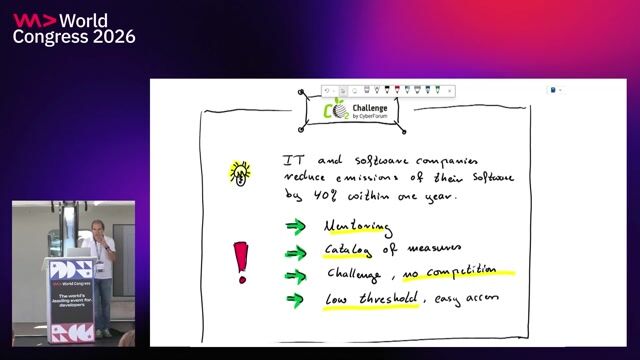 World
Congress 2026
CO2 Challenge
by CyberForum
IT and software companies
reduce emissions of their software
by 40% within one year.
Mentoring
Catalog of measures
Challenge, no competition
Low threshold, easy access
World Congress
The world's
leading event for
developers